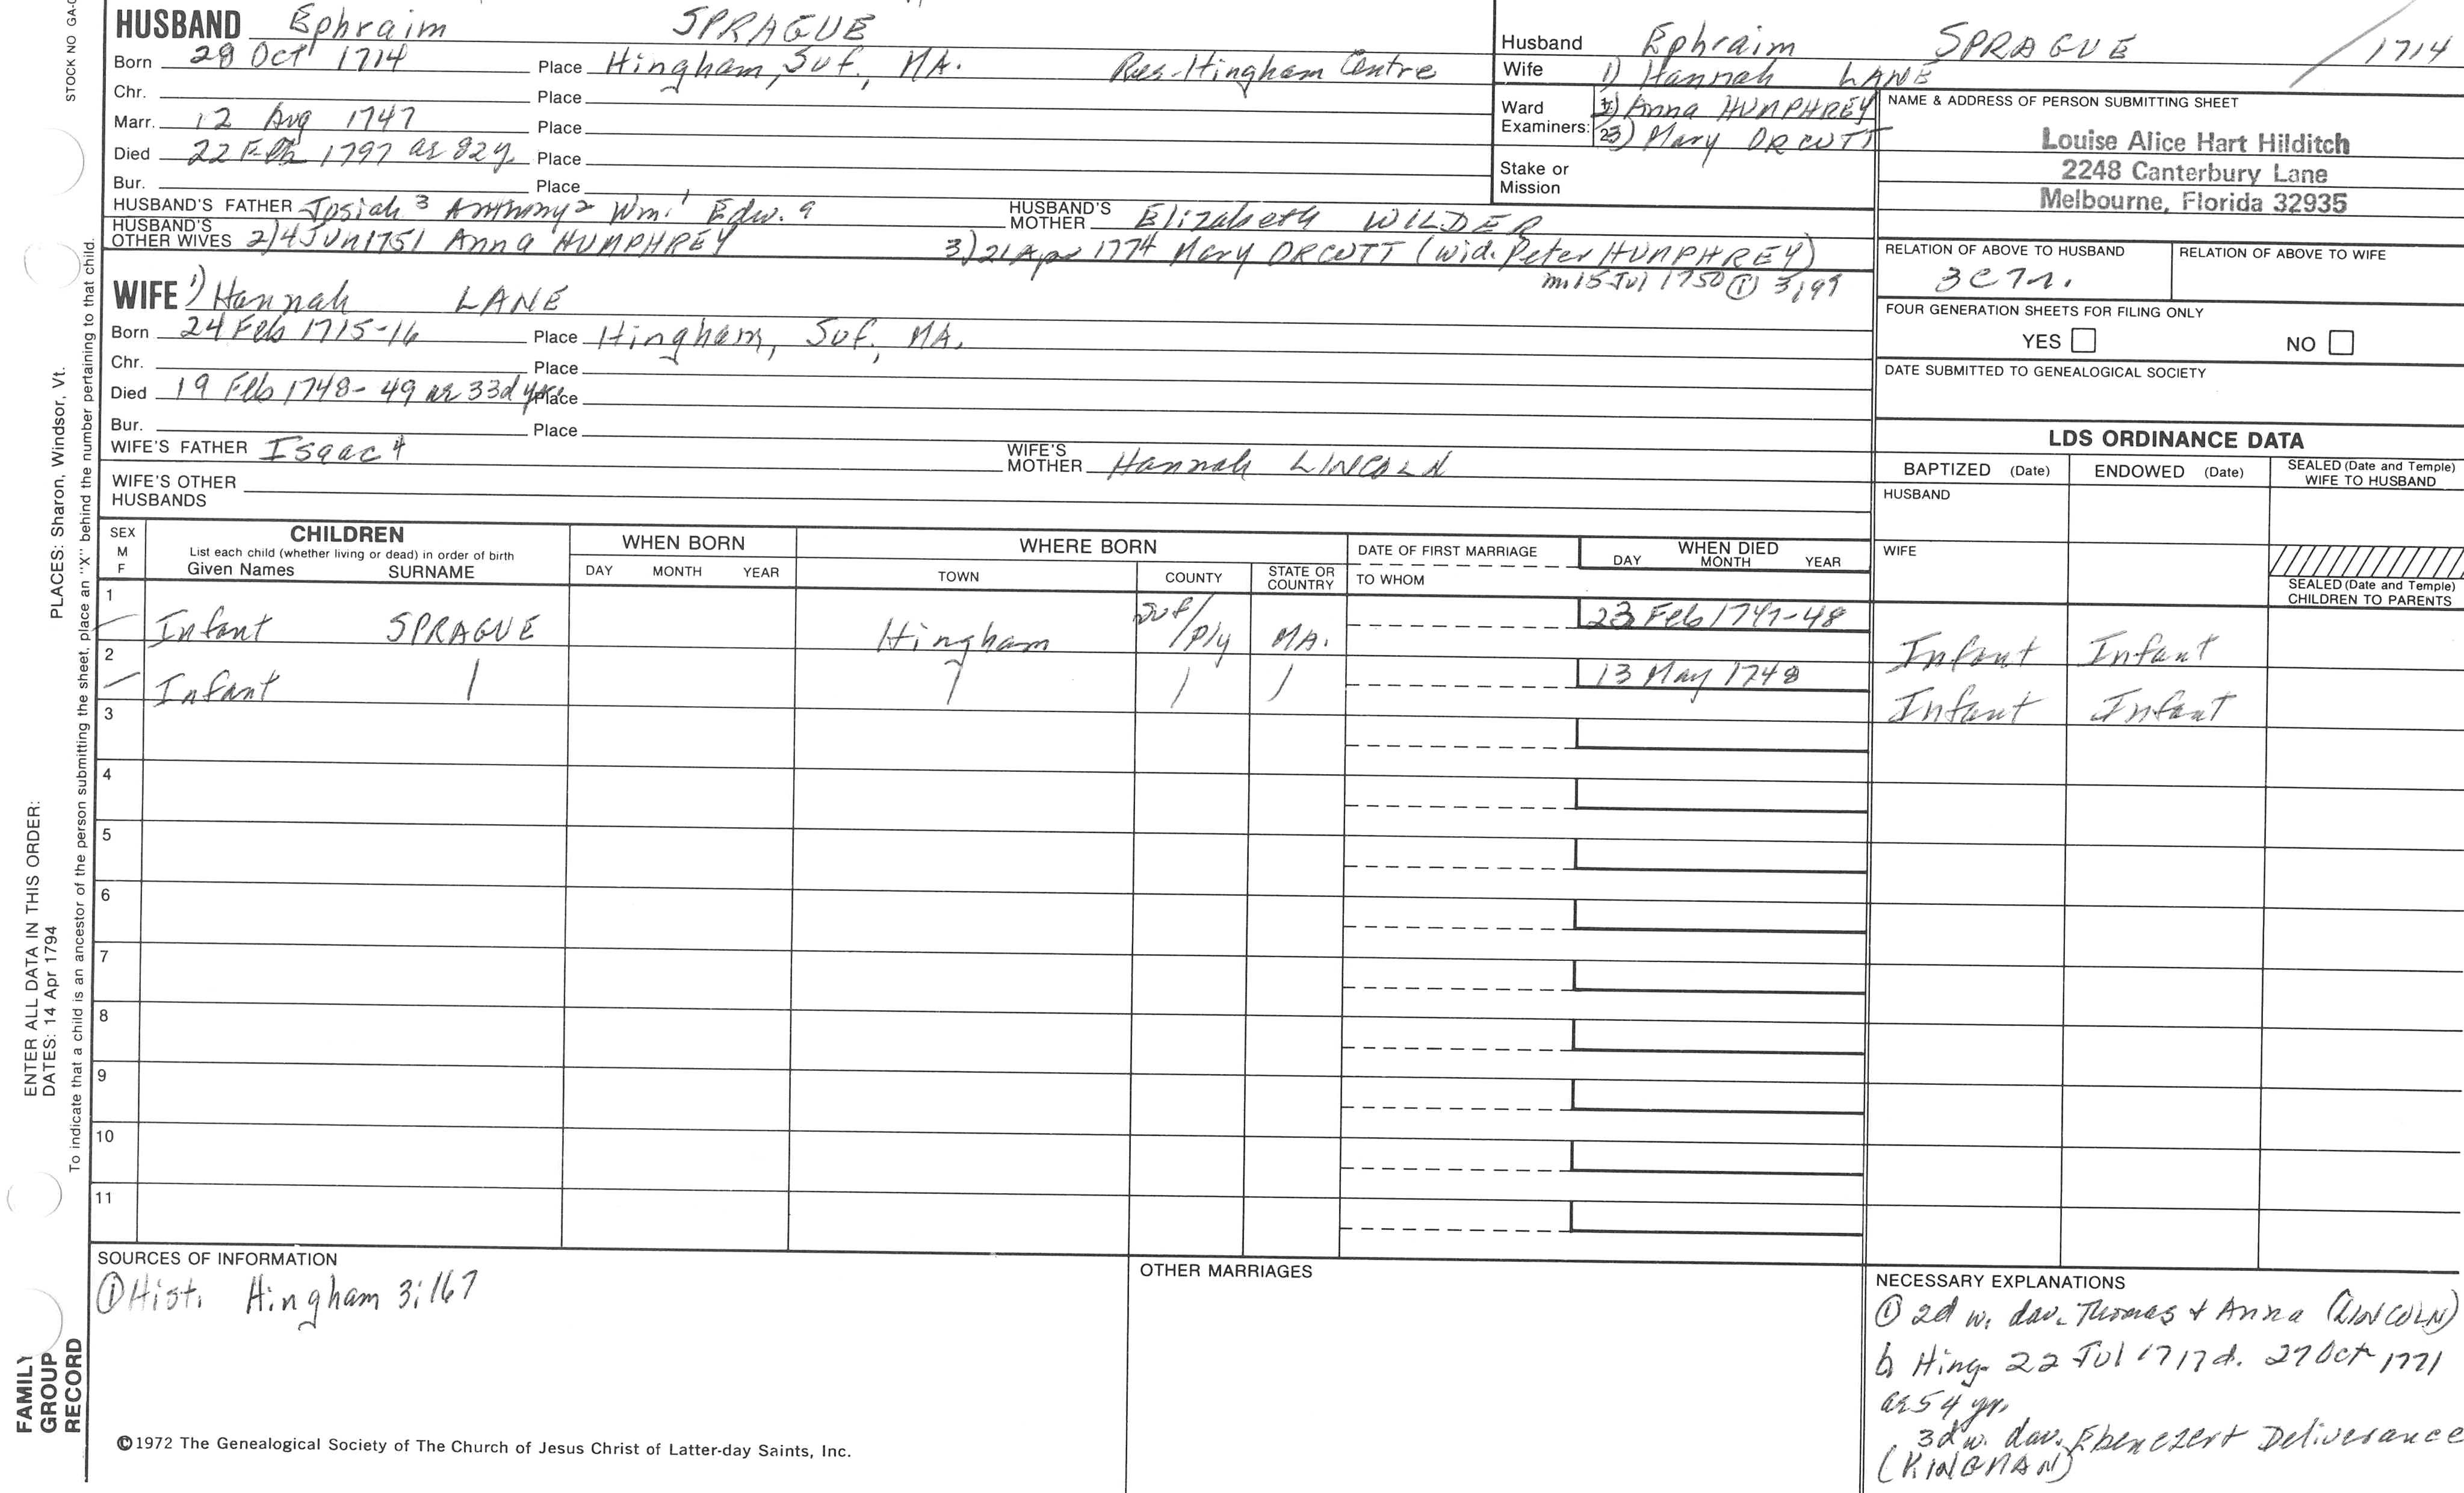 STOCK NO GA-
PLACES: Sharon, Windsor, Vt.
ENTER ALL DATA IN THIS ORDER:
DATES: 14 Apr 1794
To indicate that a child is an ancestor of the person submitting the sheet, place an "X" behind the number pertaining to that child.
FAMILY
GROUP
RECORD
HUSBAND Ephraim SPRAGUE
Born 28 Oct 1714 Place Hingham, Suf., MA. Res-Hingham Centre
Chr. Place
Marr. 12 Aug 1747 Place
Died 22 Feb 1797 ae 82y. Place
Bur. Place
HUSBAND'S FATHER Josiah 3 Anthony 2 Wm. 1 Edw. a HUSBAND'S MOTHER Elizabeth WILDER
HUSBAND'S OTHER WIVES 2) 4 Jun 1751 Anna HUMPHREY 3) 21 Apr 1774 Mary ORCUTT (wid. Peter HUMPHREY)
m. 15 Jul 1750 ① 3;99
WIFE 1) Hannah LANE
Born 24 Feb 1715-16 Place Hingham, Suf., MA.
Chr. Place
Died 19 Feb 1748-49 ae 33d yr. Place
Bur. Place
WIFE'S FATHER Isaac 4 WIFE'S MOTHER Hannah LINCOLN
WIFE'S OTHER HUSBANDS
Husband Ephraim SPRAGUE / 1714
Wife 1) Hannah LANE
Ward Examiners: 2) Anna HUMPHREY
3) Mary ORCUTT
Stake or Mission
NAME & ADDRESS OF PERSON SUBMITTING SHEET
Louise Alice Hart Hilditch
2248 Canterbury Lane
Melbourne, Florida 32935
RELATION OF ABOVE TO HUSBAND RELATION OF ABOVE TO WIFE
FOUR GENERATION SHEETS FOR FILING ONLY
YES NO
DATE SUBMITTED TO GENEALOGICAL SOCIETY
LDS ORDINANCE DATA
BAPTIZED (Date) ENDOWED (Date) SEALED (Date and Temple) WIFE TO HUSBAND
HUSBAND
WIFE
SEALED (Date and Temple)
CHILDREN TO PARENTS
SEX M F CHILDREN WHEN BORN WHERE BORN DATE OF FIRST MARRIAGE WHEN DIED
List each child (whether living or dead) in order of birth
Given Names SURNAME DAY MONTH YEAR TOWN COUNTY STATE OR COUNTRY TO WHOM DAY MONTH YEAR
1 Infant SPRAGUE Hingham Suf/Ply MA. 23 Feb 1747-48 Infant Infant
2 Infant 13 May 1748 Infant Infant
3
4
5
6
7
8
9
10
11
SOURCES OF INFORMATION
① Hist. Hingham 3;167
©1972 The Genealogical Society of The Church of Jesus Christ of Latter-day Saints, Inc.
OTHER MARRIAGES
NECESSARY EXPLANATIONS
① 2d w. dau. Thomas + Anna (LINCOLN)
b Hing. 22 Jul 1717 d. 27 Oct 1771
ae 54 yr.
3d w. dau. Ebenezer + Deliverance
(KINGMAN)